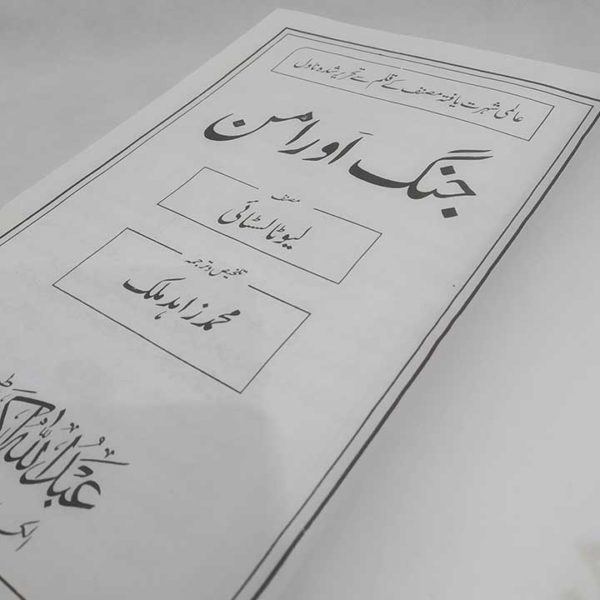 عالمی شہرت یافتہ مصنف کے قلم سے تحریر شدہ ناول
جنگ اور امن
مصنف
لیو ٹالسٹائی
تلخیص و ترجمہ
محمد زاہد ملک
عبداللہ